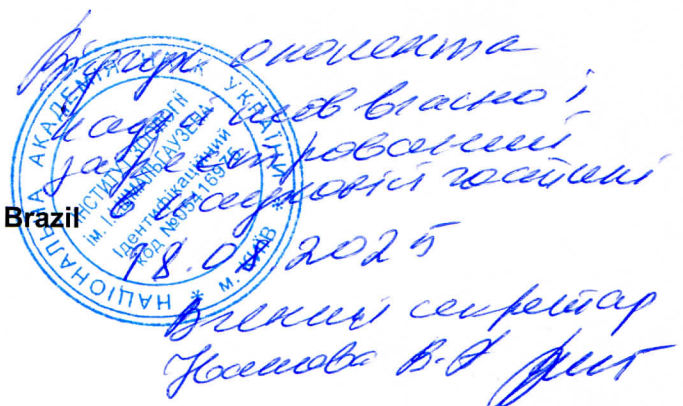 Відгук опонента
надійшов вчасно і
зареєстрований
в науковій частині
Brazil
18.0 2025
Вчений секретар
В. 
НАЦІОНАЛЬНА АКАДЕМІЯ НАУК УКРАЇНИ * м. КИЇВ *
ІНСТИТУТ ЗООЛОГІЇ
ім. І.І. ШМАЛЬГАУЗЕНА
Ідентифікаційний
код №05416975